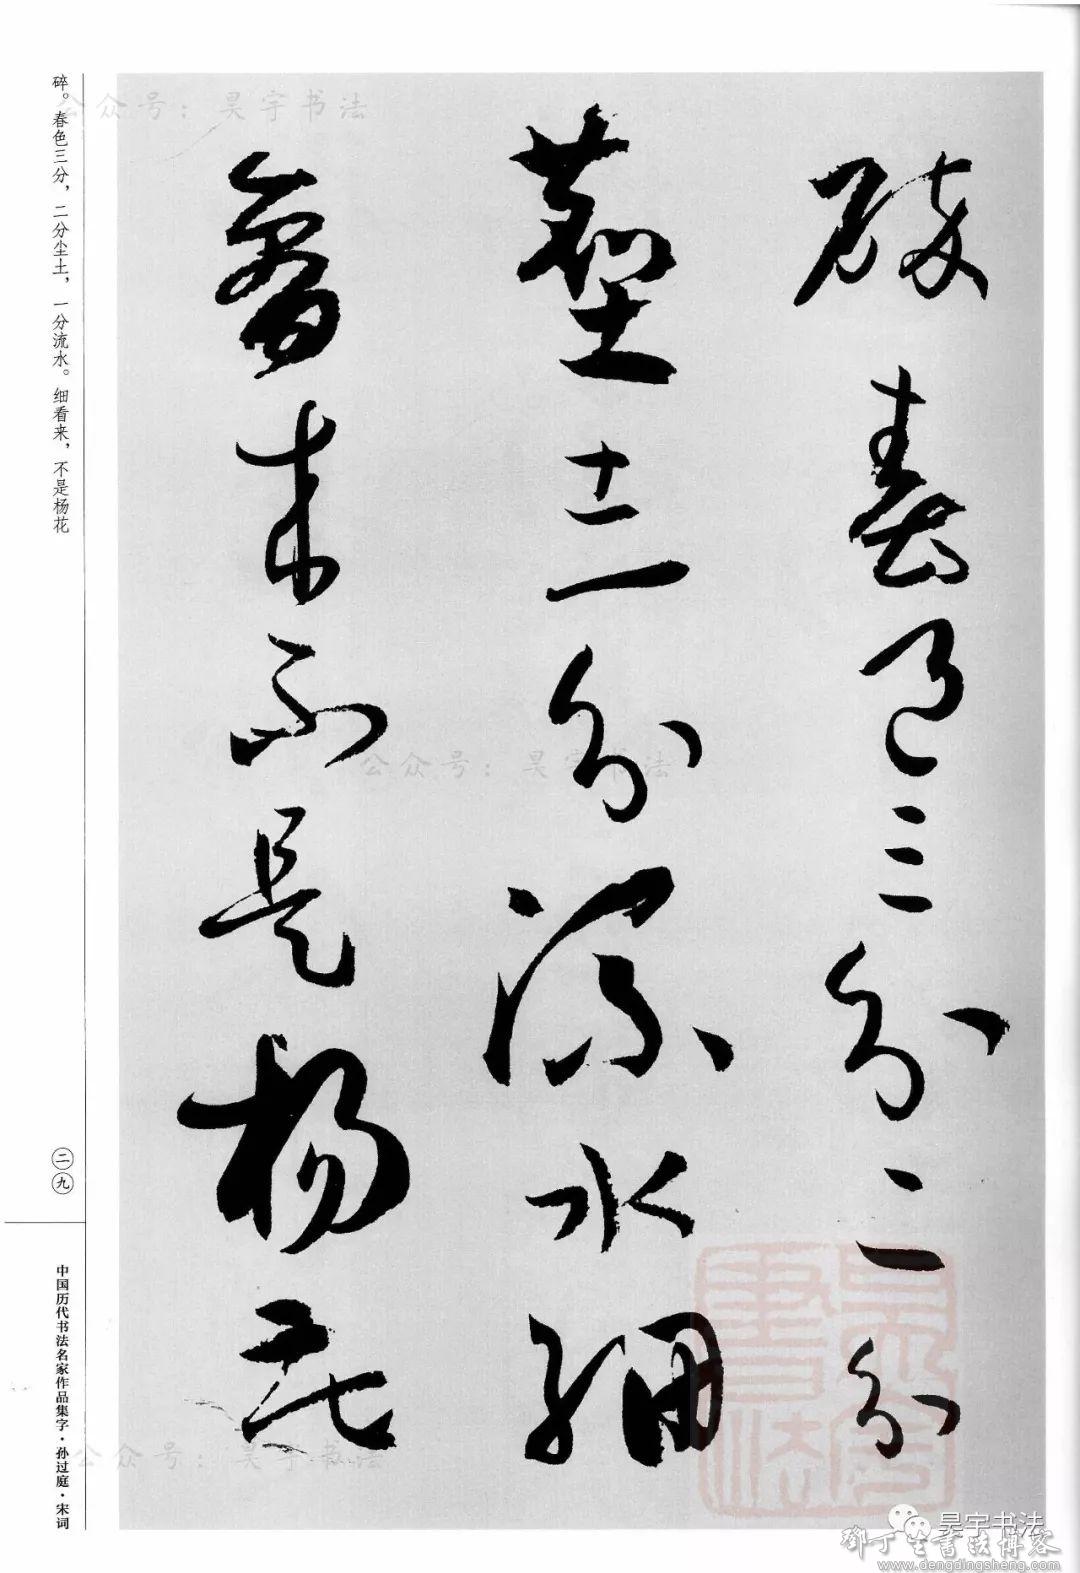 碎春色三分二分
塵土一分流水細
看来不是楊花
碎。春色三分，二分尘土，一分流水。细看来，不是杨花
二九
中国历代书法名家作品集字·孙过庭·宋词
公众号：昊宇书法
公众号：昊宇书法
公众号：昊宇书法
昊宇書法
昊宇书法
鄧丁生書法博客
www.dengdingsheng.com